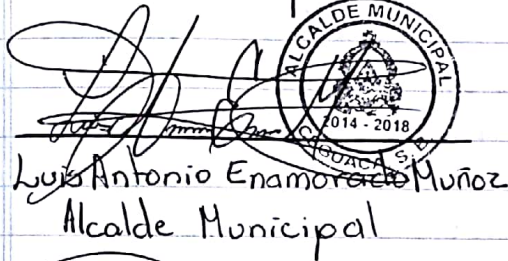 ALCALDE MUNICIPAL
2014 - 2018
S.B.
Luis Antonio Enamorado Muñoz
Alcalde Municipal